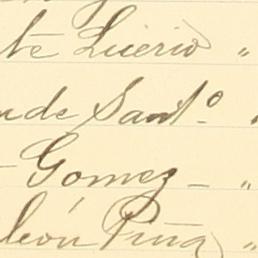 te Licerio "
nde Santº "
- Gomez - "
león Piña "